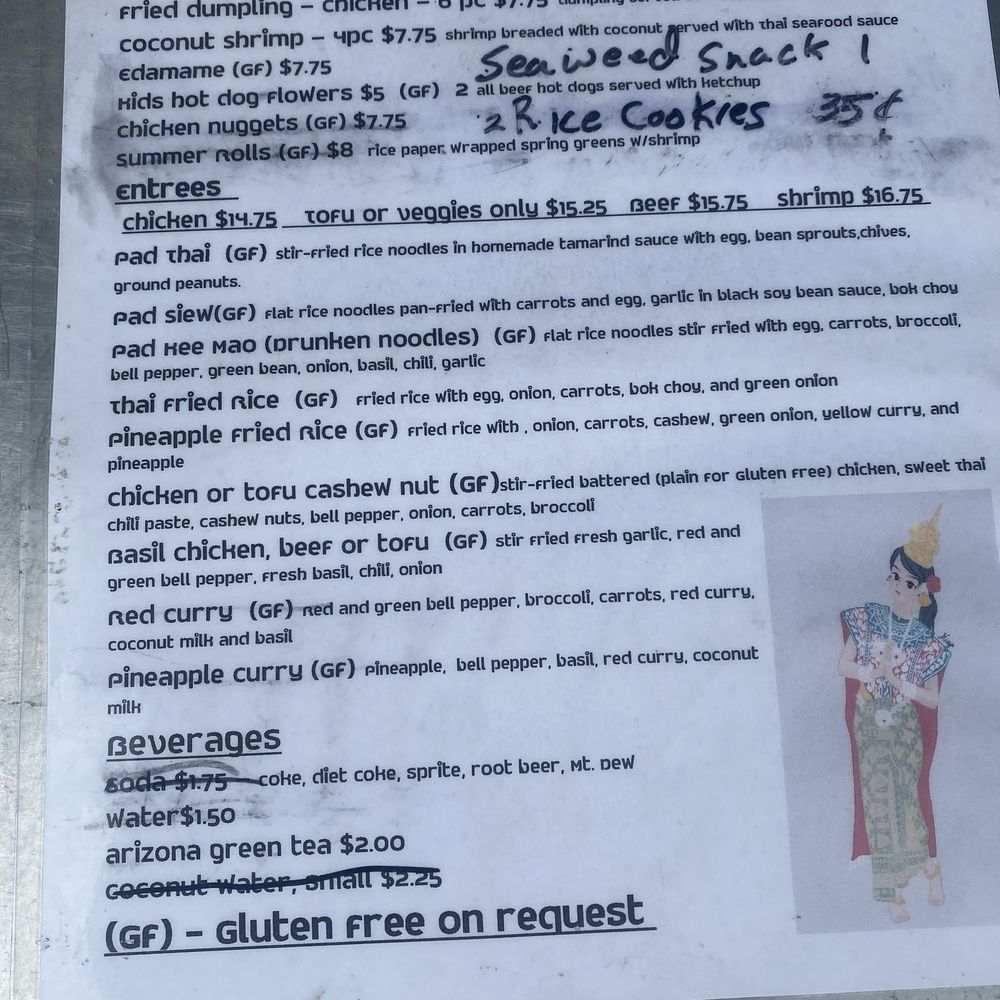 Fried dumpling – chicken – 6 pc $7.75
coconut shrimp – 4pc $7.75 shrimp breaded with coconut served with Thai seafood sauce
Edamame (GF) $7.75
Seaweed Snack 1
Kids hot dog Flowers $5 (GF) 2 all beef hot dogs served with ketchup
chicken nuggets (GF) $7.75
2 Rice Cookies 35¢
summer Rolls (GF) $8 rice paper wrapped spring greens w/shrimp
Entrees
chicken $14.75 Tofu or veggies only $15.25 Beef $15.75 shrimp $16.75
Pad Thai (GF) stir-fried rice noodles in homemade tamarind sauce with egg, bean sprouts,chives,
ground peanuts.
Pad Siew(GF) Flat rice noodles pan-fried with carrots and egg, garlic in black soy bean sauce, bok choy
Pad Kee Mao (Drunken noodles) (GF) Flat rice noodles stir fried with egg, carrots, broccoli,
bell pepper, green bean, onion, basil, chili, garlic
Thai Fried Rice (GF) Fried rice with egg, onion, carrots, bok choy, and green onion
Pineapple Fried Rice (GF) Fried rice with , onion, carrots, cashew, green onion, yellow curry, and
pineapple
chicken or tofu cashew nut (GF)stir-fried battered (plain for Gluten free) chicken, sweet Thai
chili paste, cashew nuts, bell pepper, onion, carrots, broccoli
Basil chicken, beef or tofu (GF) stir fried fresh garlic, red and
green bell pepper, fresh basil, chili, onion
Red curry (GF) Red and green bell pepper, broccoli, carrots, red curry,
coconut milk and basil
Pineapple curry (GF) Pineapple, bell pepper, basil, red curry, coconut
milk
Beverages
soda $1.75 coke, diet coke, sprite, root beer, Mt. Dew
Water$1.50
arizona green tea $2.00
coconut water, small $2.25
(GF) – Gluten Free on request